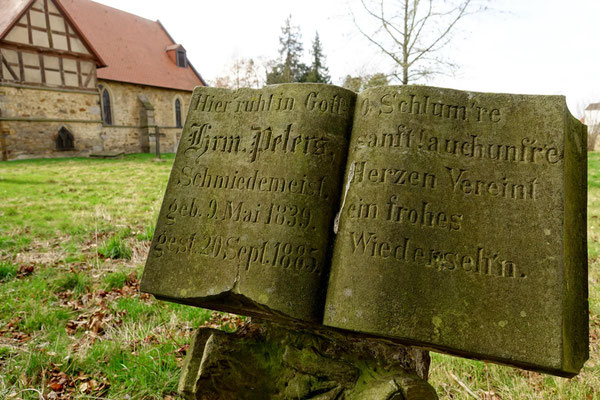 Hier ruht in Gott
Hrm. Peters,
Schmiedemeist.
geb. 9. Mai 1839.
gest. 20. Sept. 1885.
O, Schlum're
sanft! auch uns're
Herzen Vereint
ein frohes
Wiederseh'n.